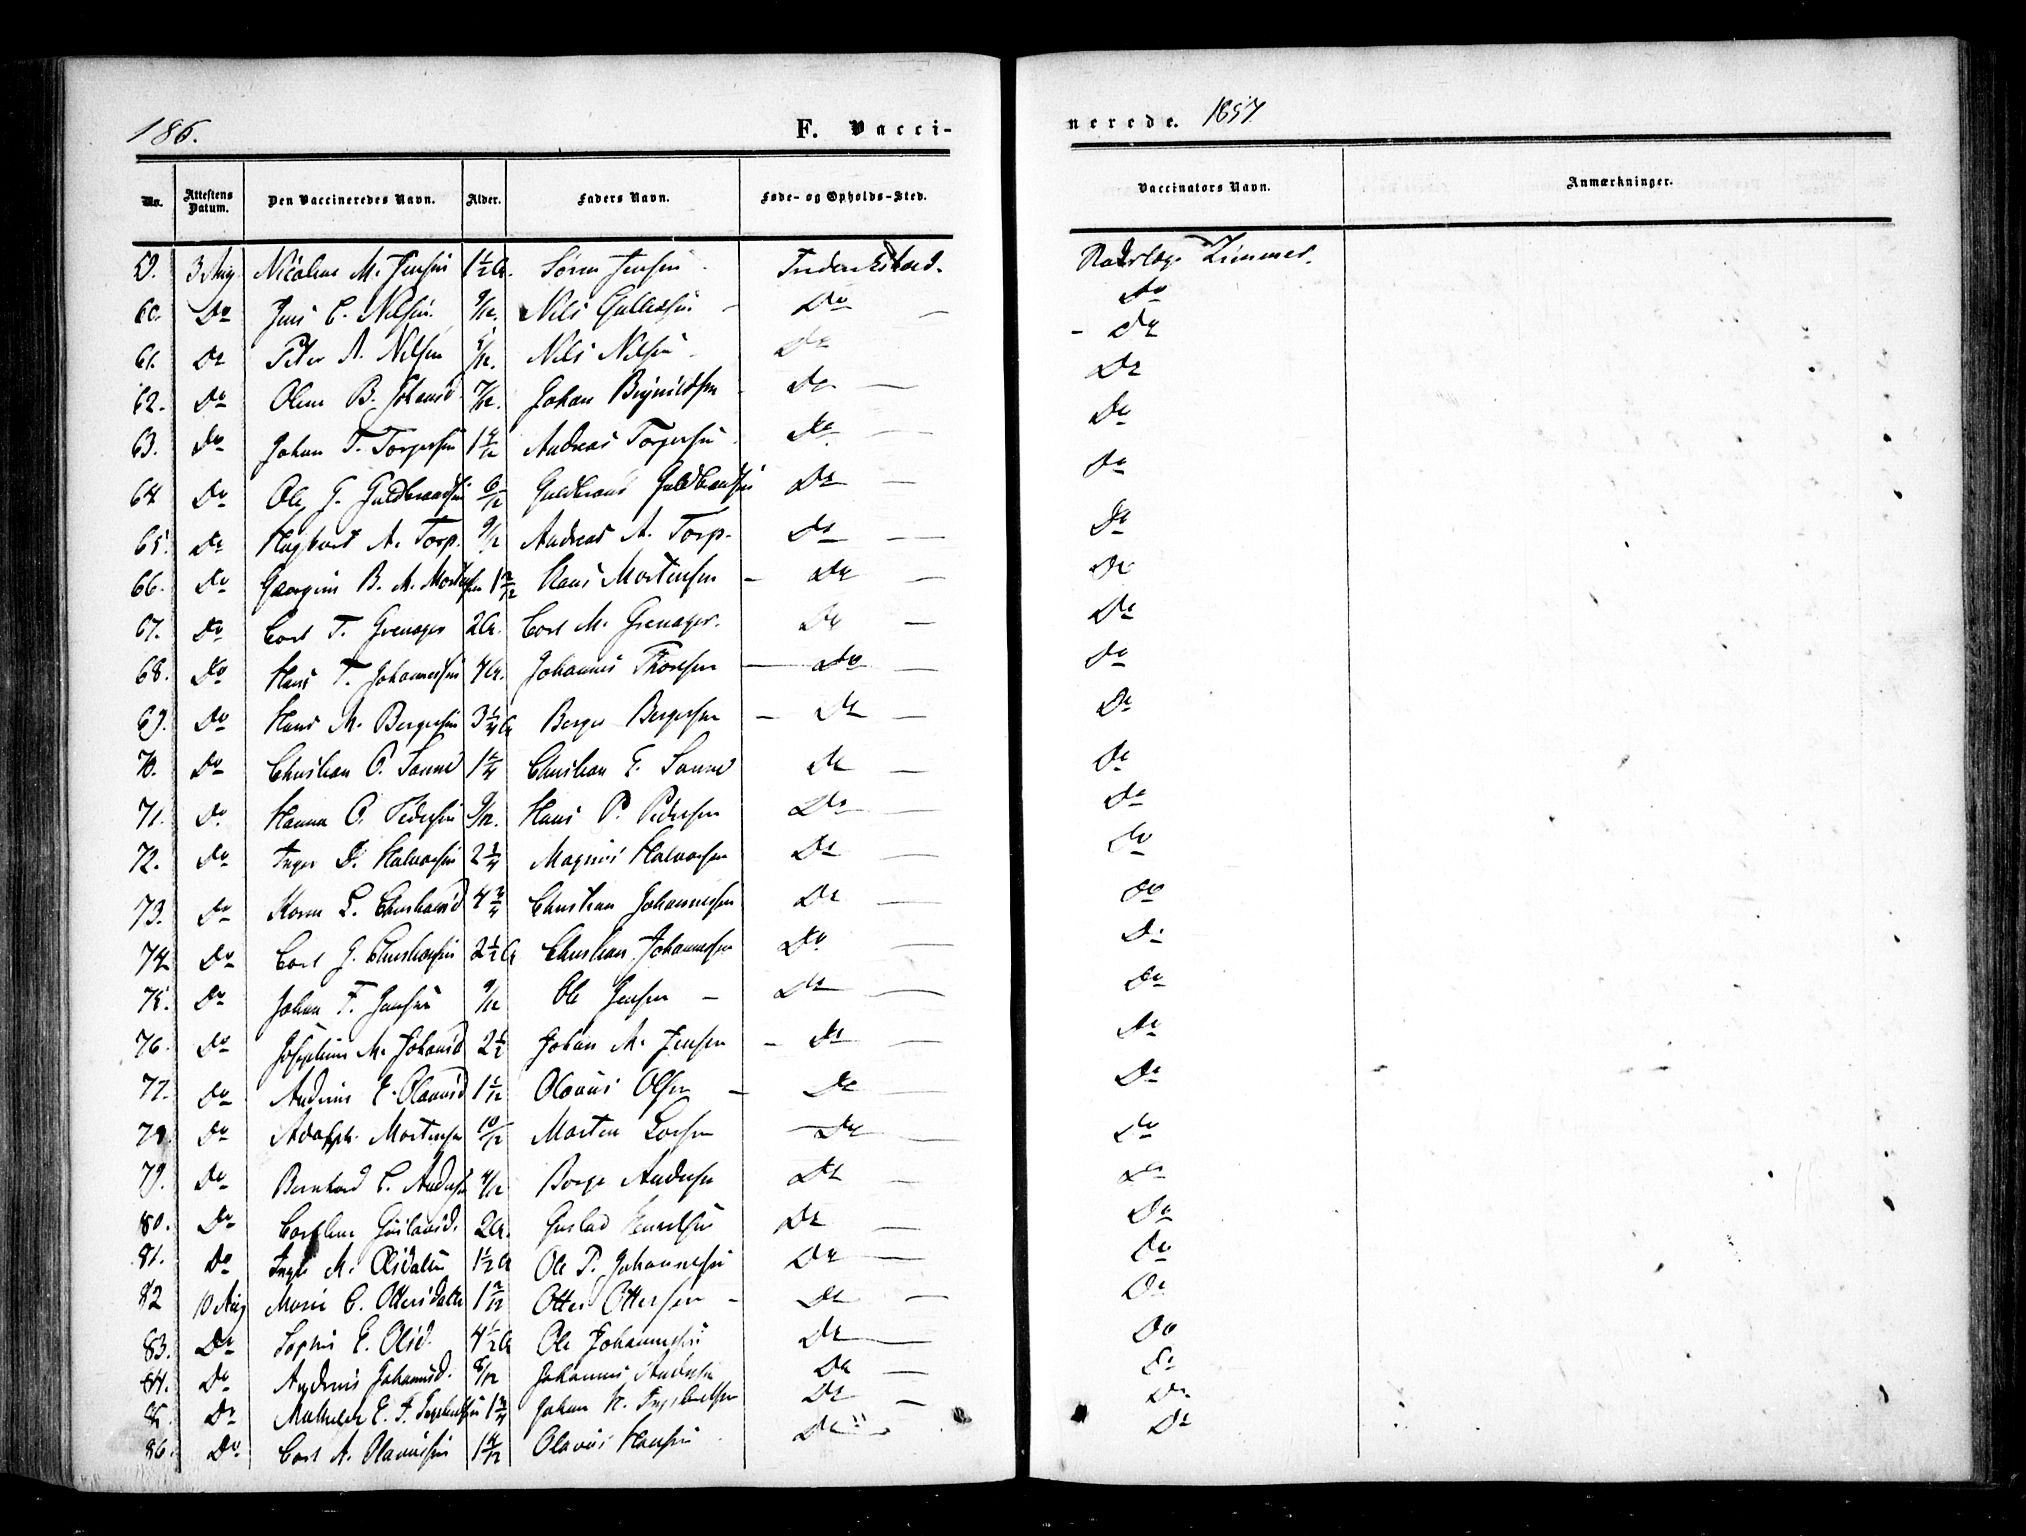 186.
F. Vacci-
nerede. 1857
No. Attestens Datum. Den Vaccineredes Navn. Alder. Faders Navn. Føde- og Opholds-Sted. Vaccinators Navn. Anmærkninger.
59. 3 Aug Nicoline M. Jensen 1 1/2 Søren Jensen Frederikstad. Zimmer.
60. Do Jens C. Nilsen 9/12. Nils Do Do
61. Do Peter A. Nilsen /12. Nils Nilsen Do Do
62. Do B. Johansd 7/12. Johan Do Do
63. Do Johan T. Torgersen 1 Andreas Torgersen Do Do
64 Do Ole G. Guldbrandsen 6/12 Guldbrand Guldbrandsen Do Do
65. Do Hagbart A. Torp. 9/12 Andreas A. Torp. Do Do
66. Do Georgine B. M. Mortensen 1 Hans Mortensen Do Do
67. Do Carl T. Grenager 2 Carl M. Grenager. Do Do
68. Do Hans T. Johannessen 4 Johannes Thoresen Do Do
69. Do Hans M. Bergersen 3 1/4 Berger Bergersen Do Do
70. Do Christian O. Sand 1 Christian E. Sand Do Do
71. Do Hanna O. Pedersen 9/12. Hans P. Pedersen Do Do
72. Do Inger D. Halvorsen 2 Magnus Halvorsen Do Do
73. Do Karen L. Christiansd 4 Christian Johannessen Do Do
74 Do Carl G. Christiansen 2 1/2 Christian Johannessen Do Do
75. Do Johan F. Jensen 9/12 Ole Jensen Do Do
76. Do Josephine M. Johansd 2 1/2 Johan M. Jensen Do Do
77. Do E. Olavusd 1 Olavus Olsen Do Do
78. Do Adolph Mortensen 10/12 Morten Do Do
79. Do Bernhard C. Andersen 4/12 Andersen Do Do
80. Do 2 Do Do
81. Do M. Olsdatter 1 1/2 Ole P. Johannessen Do Do
82 10 Aug C. Ottersdatter 1 Otter Ottersen Do Do
83. Do Sophie E. Olsd. 4 1/2 Ole Johannessen Do Do
84. Do Johannesd. 8/12 Johannes Andersen Do Do
85. Do Mathilde E. F. Ingebretsen 1 Johan Ingebretsen Do Do
86. Do Carl A. Olavussen 1 Olavus Hansen Do Do